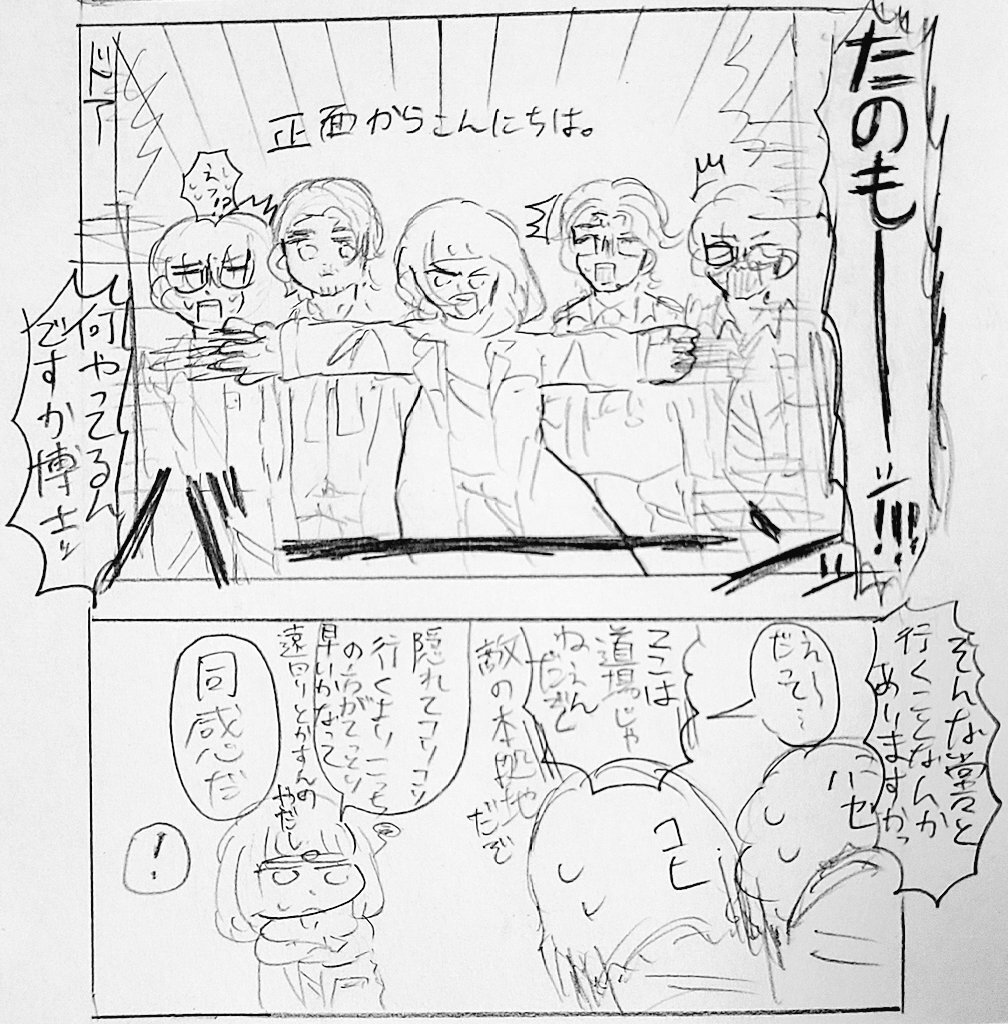 たのもーーー!!!!
正面からこんにちは。
えっ!?
ドア
何やってるん
ですか博士!!
そんな堂々と
行くことなんか
ありますかっ
ハセ
えー…
だって…
コヒ
ここは
道場じゃ
ねぇん
だぞ
敵の本拠地
だぞ
隠れてコソコソ
行くより こっち
の方がてっとり
早いかなって
遠回りとかすんの
やだし
同感だ
!